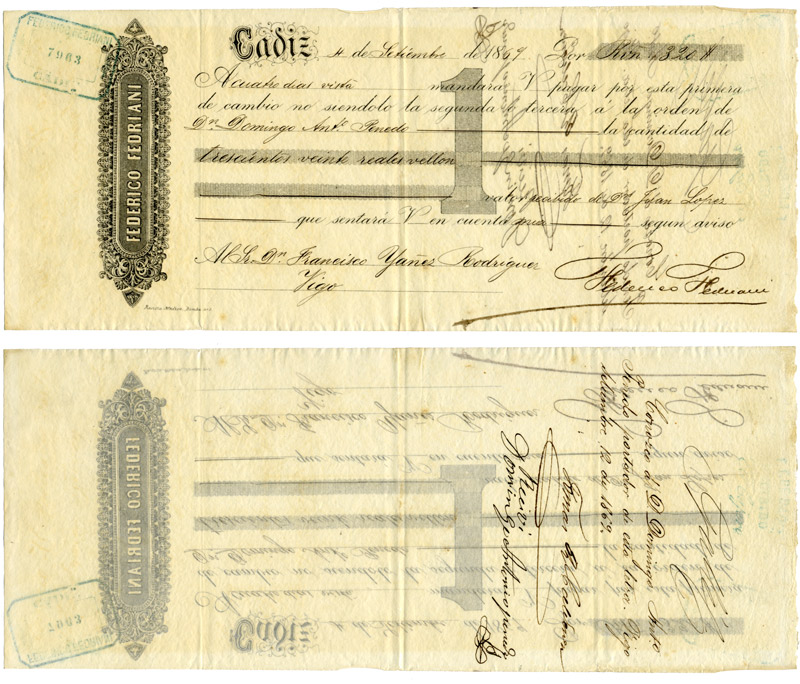 FEDERICO FEDRIANI
7963
CADIZ
FEDERICO FEDRIANI
Cadiz 4 de Setiembre de 1869 Por Rvn 320 //
A cuatro dias vista mandará V pagar por esta primera
de cambio no siendolo la segunda ó tercera á la orden de
Dn Domingo Antº Penedo la cantidad de
trescientos veinte reales vellon
1
valor recibido de Dn Juan Lopez
que sentará V en cuenta segun aviso
Al Sr. Dn Francisco Yañez Rodriguez
Vigo
Federico Fedriani
Conozco á D. Domingo Antº
Penedo portador de esta letra. Vigo
Setiembre 12 de 1869.
Tomas
Recivi
Domingo Antonio penedo